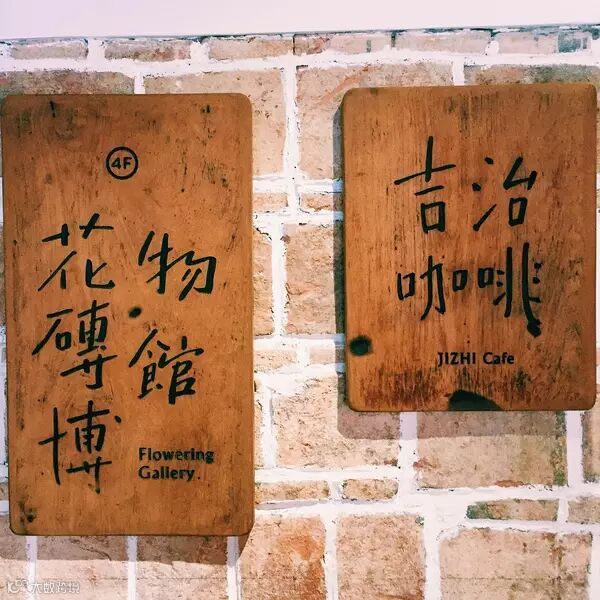 4F
花磚博
物館
Flowering
Gallery
吉治
咖啡
JIZHI Cafe
大数跨境